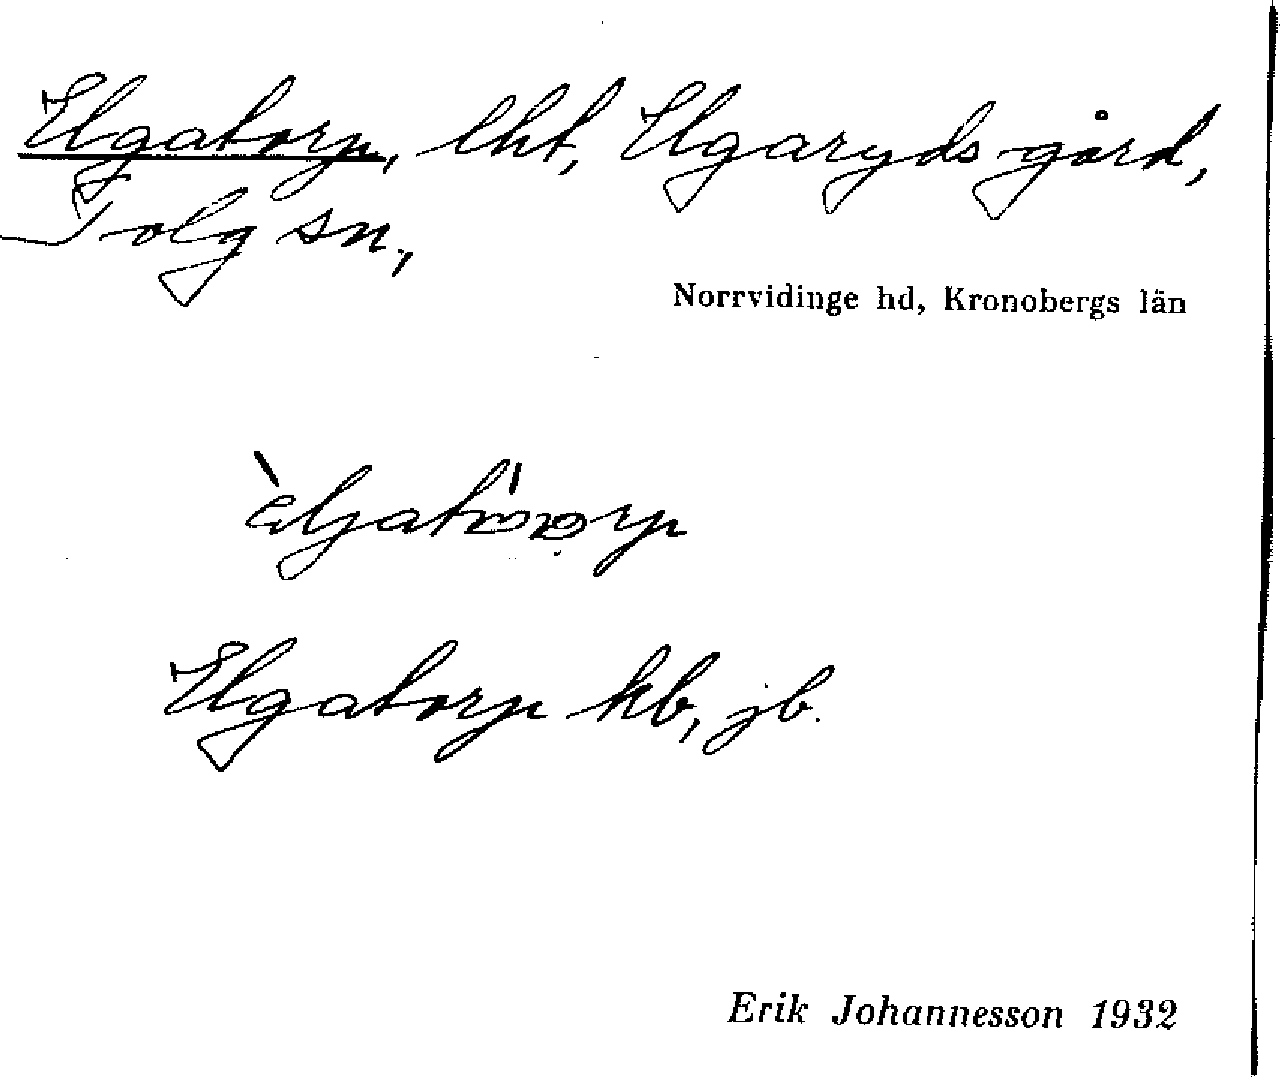 Elgatorp, lht, Elgaryds gård,
Tolg sn,
Norrvidinge hd, Kronobergs län
Elgatorp kb, jb.
Erik Johannesson 1932